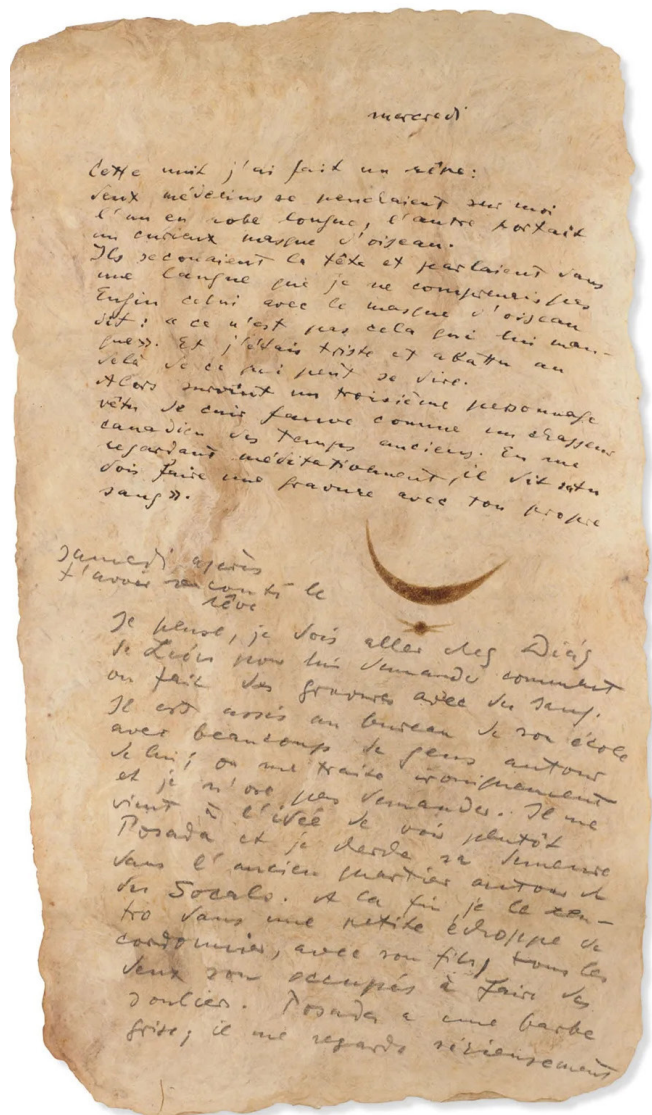 mercredi
Cette nuit j'ai fait un rêve:
deux médecins se penchaient sur moi
l'un en robe longue, l'autre portait
un curieux masque d'oiseau.
Ils secouaient la tête et parlaient dans
une langue que je ne comprenais pas
Enfin celui avec le masque d'oiseau
dit: « ce n'est pas cela qui lui man-
que». Et j'étais triste et abattu au
delà de ce qui peut se dire.
Alors survint un troisième personnage
vêtu de cuir fauve comme un chasseur
canadien des temps anciens. En me
regardant méditativement, il dit «tu
dois faire une gravure avec ton propre
sang».
Samedi après
t'avoir raconté le
rêve
Je pense, je dois aller cheg
de León pour lui demande comment
on fait des gravures avec du sang.
Il est assis au bureau de son école
avec beaucoup de gens autour
de lui; on me traite ironiquement
et je n'ose pas demander. Il me
vient à l'idée de voir plutôt
Posada et je cherche sa demeure
dans l'ancien quartier autour de
du Socalo. A la fin je le ren-
tro dans une petite échoppe de
cordonnier, avec son fils, tous les
deux son occupés à faire des
soulier. Posada a une barbe
grise; il me regarde sérieusement